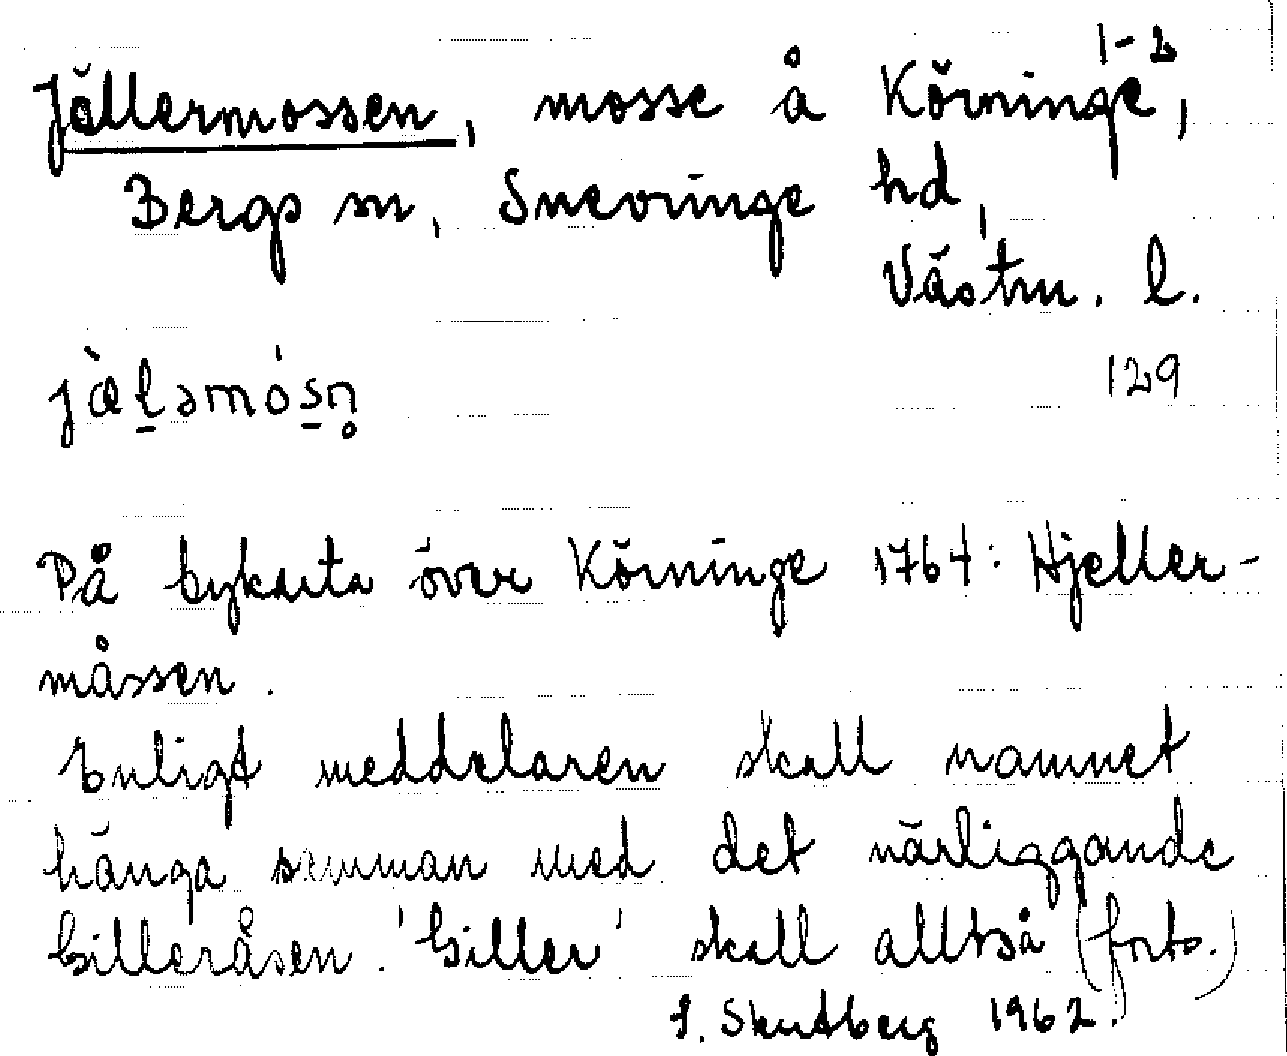 Jällermossen, mosse å Körninge 1-2,
Bergs sn, Snevringe hd,
Västm. l.
129
jæ̀ḻəmós̱n̥
På bykarta över Körninge 1764: Hjeller-
måssen.
Enligt meddelaren skall namnet
hänga samman med det närliggande
Gilleråsen. 'Giller' skall alltså (forts.)
I. Skutberg 1962.